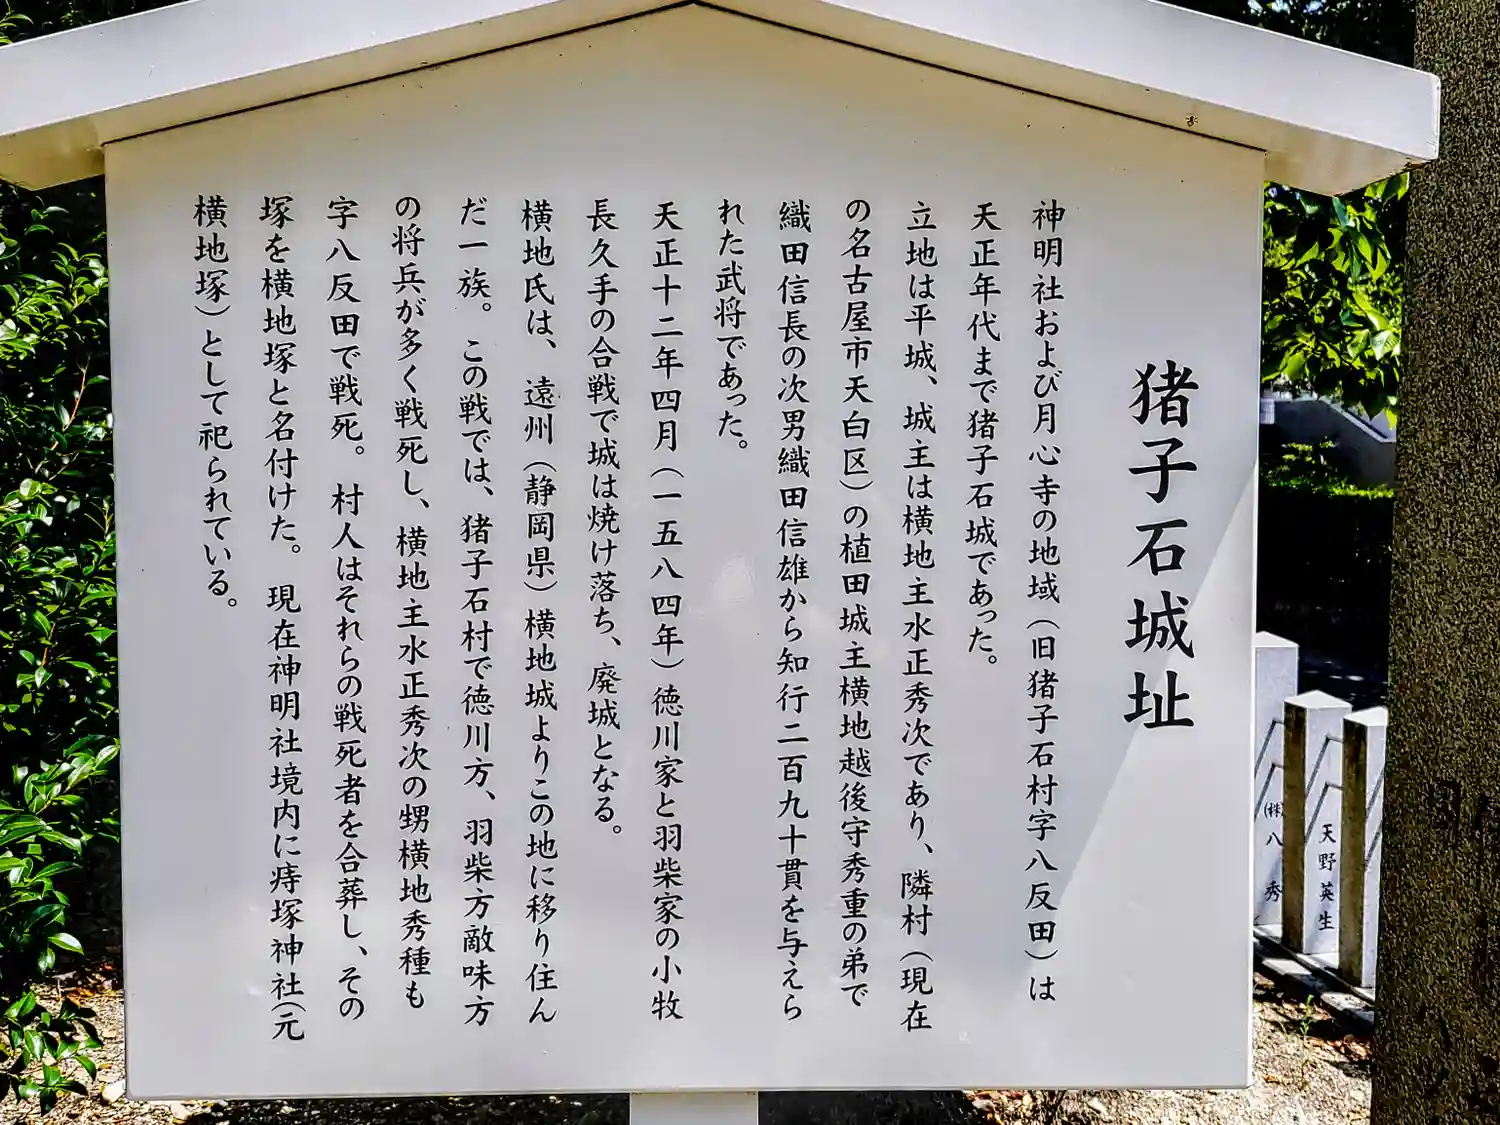 猪子石城址
神明社および月心寺の地域（旧猪子石村字八反田）は
天正年代まで猪子石城であった。
立地は平城、城主は横地主水正秀次であり、隣村（現在
の名古屋市天白区）の植田城主横地越後守秀重の弟で
織田信長の次男織田信雄から知行二百九十貫を与えら
れた武将であった。
天正十二年四月（一五八四年）徳川家と羽柴家の小牧
長久手の合戦で城は焼け落ち、廃城となる。
横地氏は、遠州（静岡県）横地城よりこの地に移り住ん
だ一族。この戦では、猪子石村で徳川方、羽柴方敵味方
の将兵が多く戦死し、横地主水正秀次の甥横地秀種も
字八反田で戦死。村人はそれらの戦死者を合葬し、その
塚を横地塚と名付けた。現在神明社境内に痔塚神社（元
横地塚）として祀られている。
天野英生
(株)八秀